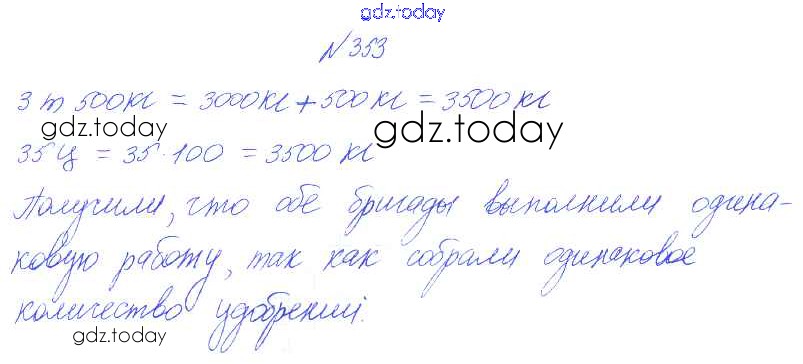 gdz.today
№353
3 т 500 кг = 3000 кг + 500 кг = 3500 кг
gdz.today
gdz.today
35 ц = 35 · 100 = 3500 кг
Получили, что обе бригады выполнили одина-
ковую работу, так как собрали одинаковое
количество удобрений.
gdz.today